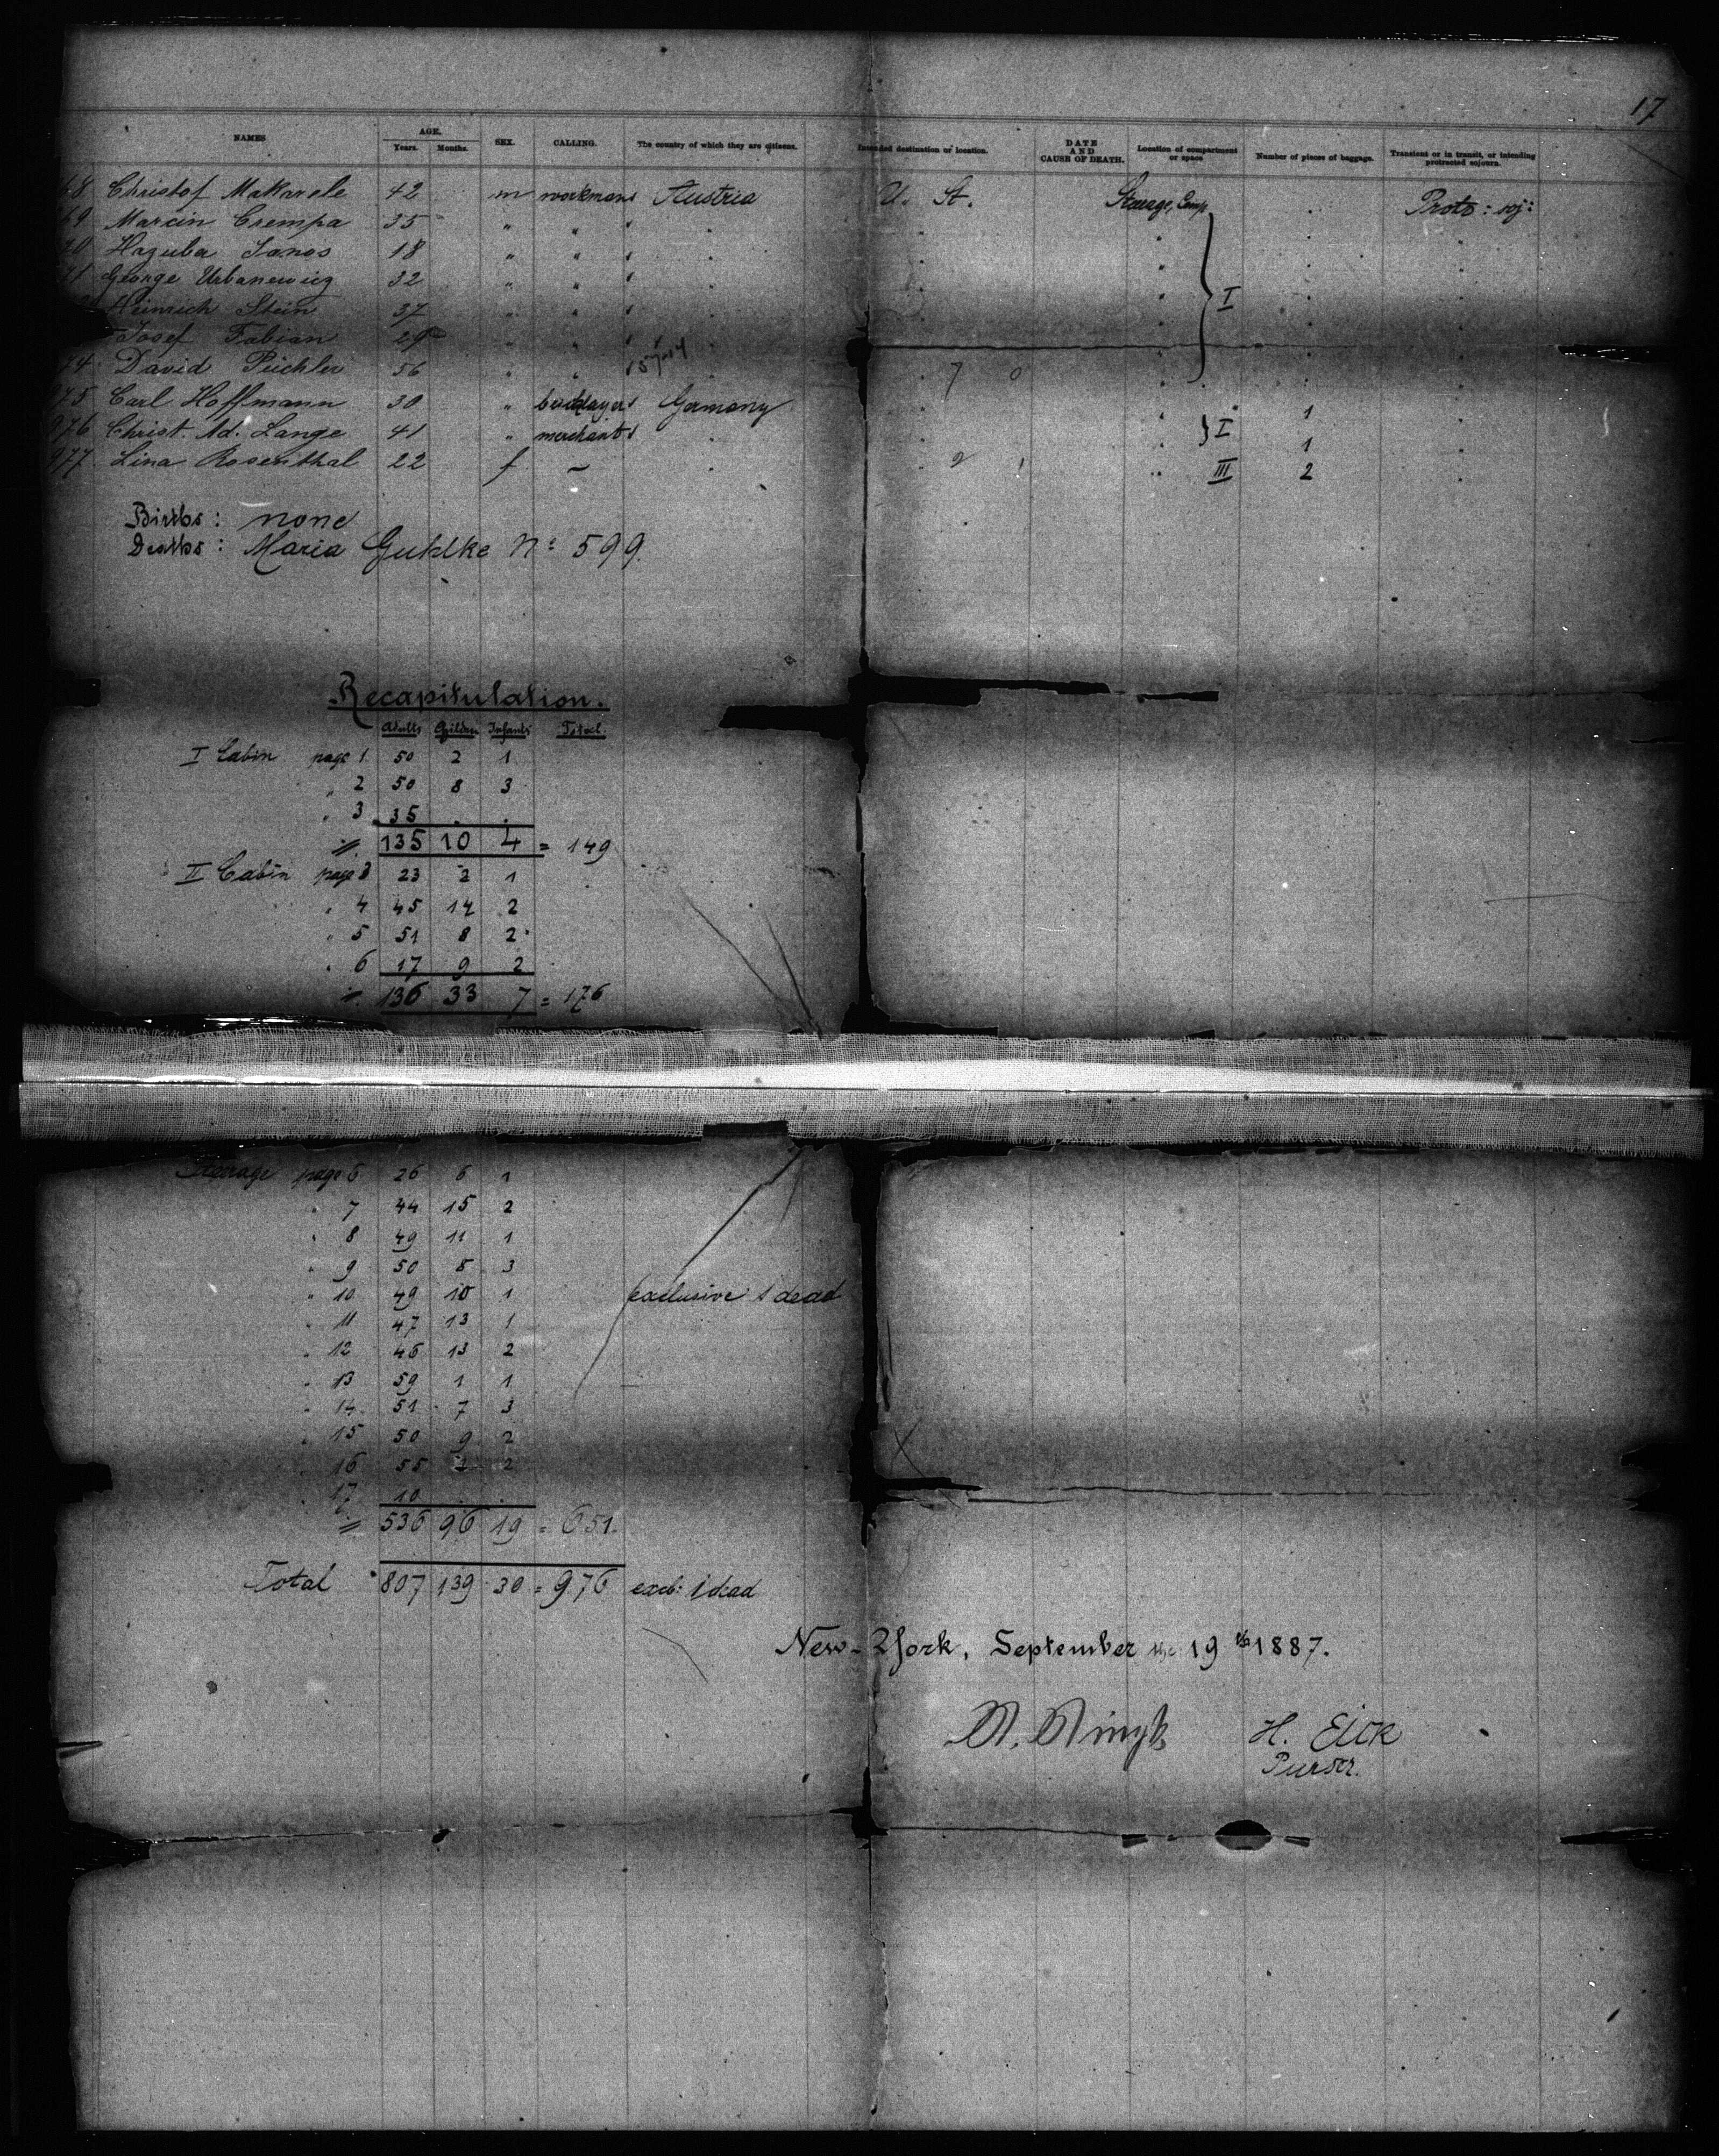 17
NAMES AGE. Years. Months. SEX. CALLING. The country of which they are citizens. Intended destination or location. DATE AND CAUSE OF DEATH. Location of compartment or space Number of pieces of baggage. Transient or in transit, or intending protracted sojourn.
68 Christof Makarele 42 m workman Austria U. St. Steerage, Comp Proto: soj:
69 Marcin Crempa 35 " " "
70 Hazuba Janos 18 " " "
71 George Urbanewicz 32 " " " I
Heinrich Stein 37 " " "
Josef Fabian 29 " " "
74 David Püchler 56 " " 7 0
975 Carl Hoffmann 30 " bricklayer Germany 1
976 Christ. Ad. Lange 41 " merchant I 1
977 Lina Rosenthal 22 f – 2 1 " III 2
Births: none
Deaths: Maria Guhlke No: 599.
Recapitulation.
Adults Infants Total
I Cabin page 1 50 2 1
" 2 50 8 3
" 3 35 . .
135 10 4 = 149
II Cabin page 3 23 2 1
" 4 45 14 2
" 5 51 8 2
" 6 17 9 2
136 33 7 = 176
Steerage page 6 26 6 1
" 7 44 15 2
" 8 49 11 1
" 9 50 8 3
" 10 49 10 1 exclusive 1 dead
" 11 47 13 1
" 12 46 13 2
" 13 59 1 1
" 14 51 7 3
" 15 50 9 2
" 16 55 2
" 17 10 . .
536 96 19 = 651.
Total 807 139 30 = 976 excl: 1 dead
New-York, September the 19th 1887.
H. Eick
Purser.